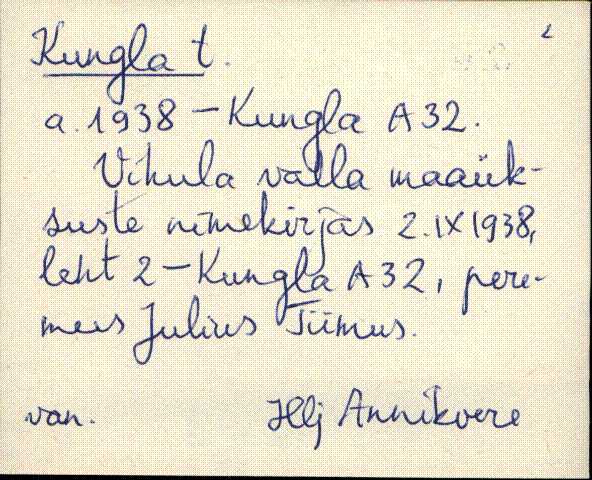 Kungla t.
a. 1938 – Kungla A 32.
Vihula valla maaük-
suste nimekirjas 2.IX 1938,
leht 2 – Kungla A 32, pere-
mees Julius Tiimus.
van. Hlj Annikvere